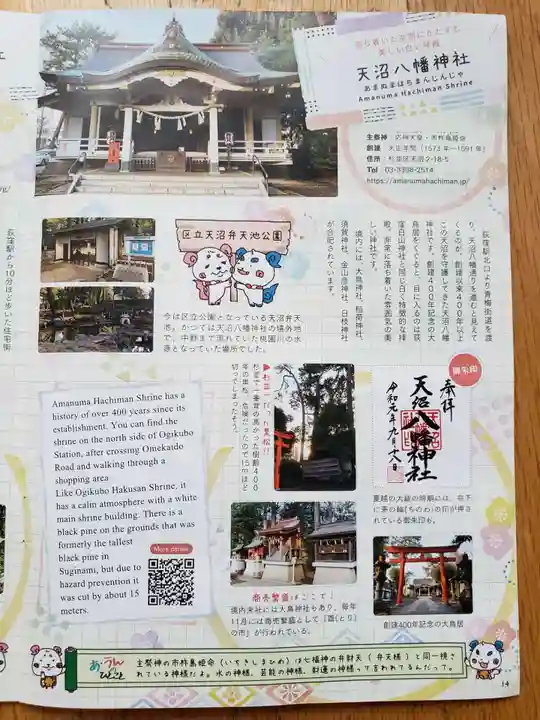 天沼八幡神社
あまぬまはちまんじんじゃ
Amanuma Hachiman Shrine
主祭神 応神天皇・市杵島姫命
創建 天正年間(1573年―1591年)
住所 杉並区天沼2-18-5
Tel 03-3398-2514
https://amanumahachiman.jp/
荻窪駅北口より青梅街道を渡
り、天沼八幡通りを進むと見えて
くるのが、創建以来400年以上
この天沼を守護してきた天沼八幡
神社です。創建400年記念の大
鳥居をくぐると、目に入るのは荻
窪白山神社と同じ白く特徴的な拝
殿。非常に落ち着いた雰囲気の美
しい神社です。
境内には、大鳥神社、稲荷神社、
須賀神社、金山彦神社、日枝神社
が合祀されています。
区立天沼弁天池公園
今は区立公園となっている天沼弁天
池。かつては天沼八幡神社の境外地
で、中野まで流れていた桃園川の水
源となっていた場所でした。
荻窪駅から10分ほど歩いた住宅街
Amanuma Hachiman Shrine has a
history of over 400 years since its
establishment. You can find the
shrine on the north side of Ogikubo
Station, after crossing Omekaido
Road and walking through a
shopping area
Like Ogikubo Hakusan Shrine, it
has a calm atmosphere with a white
main shrine building. There is a
black pine on the grounds that was
formerly the tallest
black pine in
Suginami, but due to
hazard prevention it
was cut by about 15
meters.
More details
杉並で一番背の高かった樹齢400
年の黒松。危険だったので15mほど
切ってしまったそう。
御朱印
奉拝
天沼八幡神社
令和元年九月十八日
夏越の大祓の時期には、右下
に茅の輪(ちのわ)の印が押さ
れている御朱印も。
商売繁盛はここで!
境内末社には大鳥神社もあり、毎年
11月には商売繁盛として「酉(とり)
の市」が行われている。
創建400年記念の大鳥居
あ・うん
ひとこと
主祭神の市杵島姫命(いちきしまひめ)は七福神の弁財天(弁天様)と同一視さ
れている神様だよ。水の神様、芸能の神様、財運の神様って言われてるんだって。
14